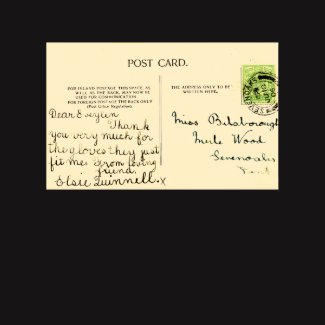 POST CARD.
FOR INLAND POSTAGE THIS SPACE, AS
WELL AS THE BACK, MAY NOW BE
USED FOR COMMUNICATION.
FOR FOREIGN POSTAGE THE BACK ONLY
(Post Office Regulation).
Dear Eveylen
Thank
you very much for
the gloves they just
fit me. From loving
friend.
Elsie Quinnell. X
THE ADDRESS ONLY TO BE
WRITTEN HERE.
Miss Bilsborough
Merle Wood
Sevenoaks
Kent